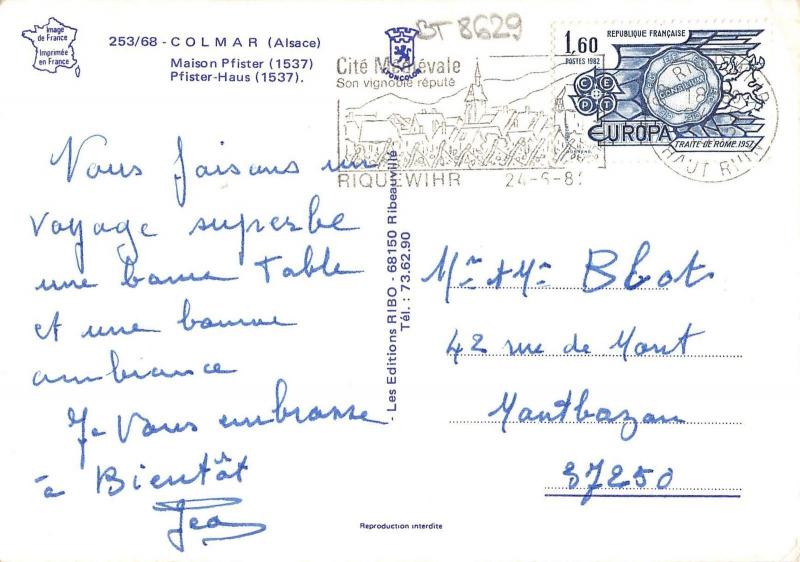 Image
de France
Imprimée
en France
253/68 - COLMAR (Alsace)
Maison Pfister (1537)
Pfister-Haus (1537).
BT 8629
Cité Médiévale
Son vignoble réputé
RIQUEWIHR 24-5-8
HAUT RHIN
1,60
RÉPUBLIQUE FRANÇAISE
POSTES 1982
CEPT
EUROPA
TRAITÉ DE ROME 1957
Vous faisons un
voyage superbe
une bonne Table
et une bonne
ambiance
Je Vous embrasse
à Bientôt
- Les Editions RIBO - 68150 Ribeauvillé
Tél. : 73.62.90
Mr et Mme Blot
42 rue de Mont
Montbazon
37250
Reproduction interdite